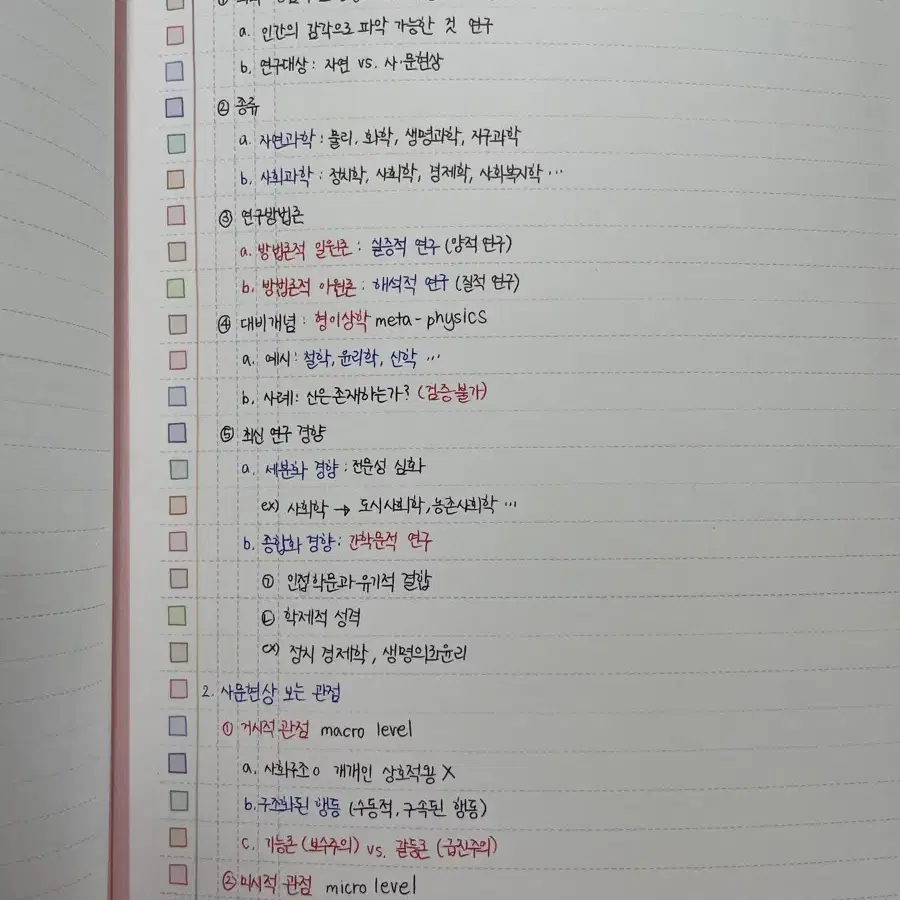 a. 인간의 감각으로 파악 가능한 것 연구
b. 연구대상: 자연 vs. 사·문현상
② 종류
a. 자연과학: 물리, 화학, 생명과학, 지구과학
b. 사회과학: 정치학, 사회학, 경제학, 사회복지학 …
③ 연구방법론
a. 방법론적 일원론: 실증적 연구 (양적 연구)
b. 방법론적 이원론: 해석적 연구 (질적 연구)
④ 대비개념: 형이상학 meta-physics
a. 예시: 철학, 윤리학, 신학 …
b. 사례: 신은 존재하는가? (검증불가)
⑤ 최신 연구 경향
a. 세분화 경향: 전문성 심화
ex) 사회학 → 도시사회학, 농촌사회학 …
b. 종합화 경향: 간학문적 연구
㉠ 인접학문과 유기적 결합
㉡ 학제적 성격
ex) 정치 경제학, 생명의료윤리
2. 사문현상 보는 관점
① 거시적 관점 macro level
a. 사회구조 O 개개인 상호작용 X
b. 구조화된 행동 (수동적, 구속된 행동)
c. 기능론 (보수주의) vs. 갈등론 (급진주의)
② 미시적 관점 micro level